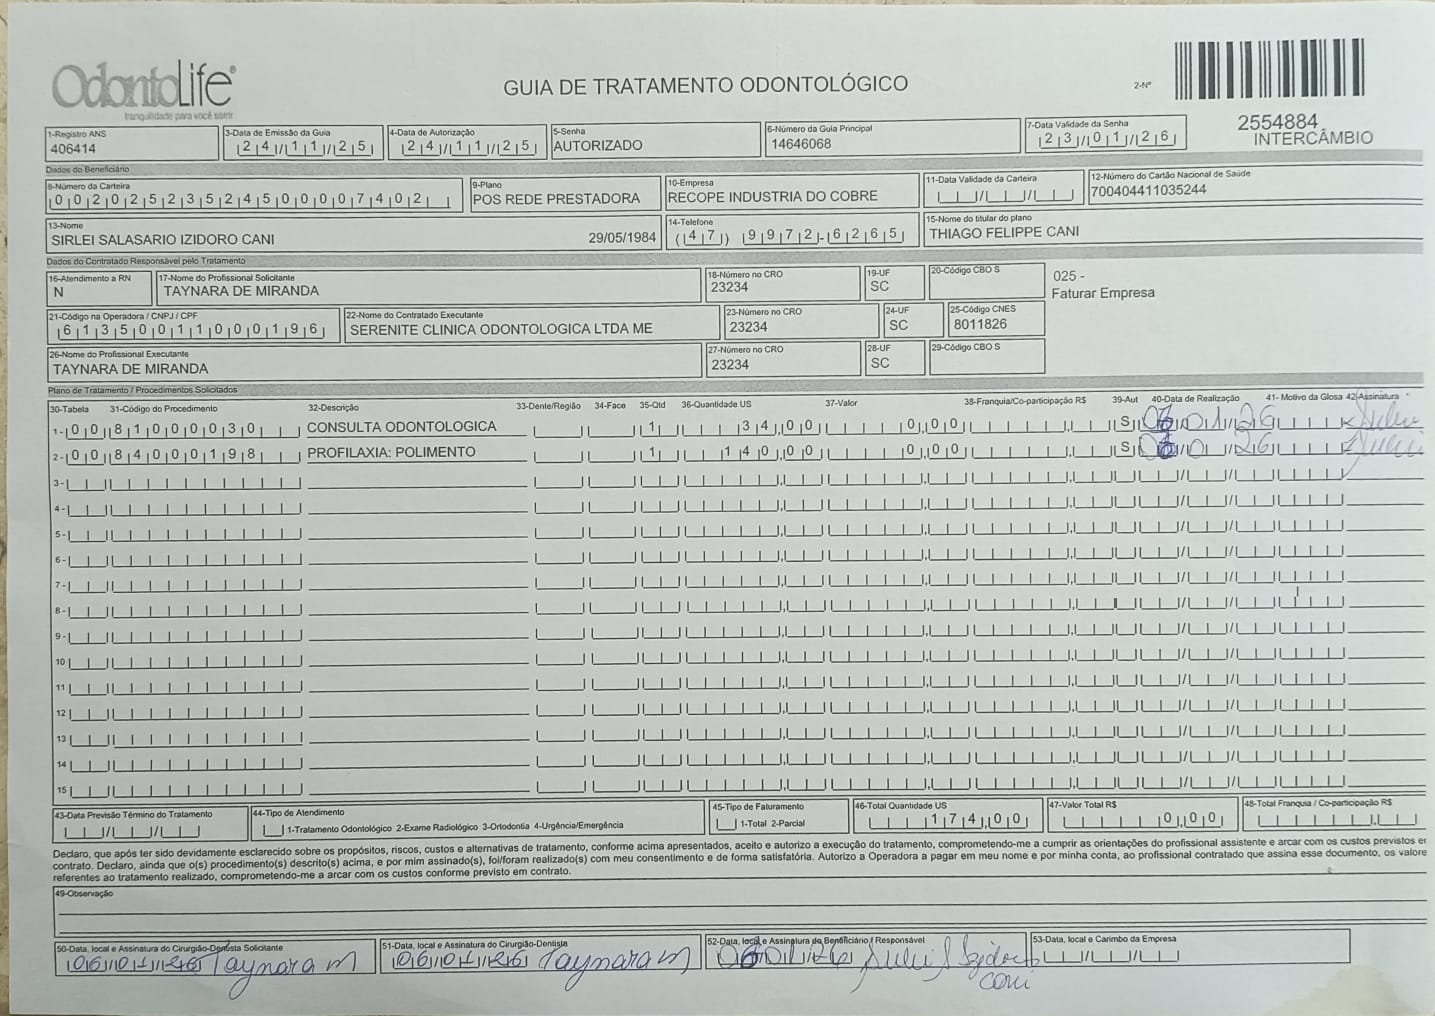 OdontoLife®
tranquilidade para você sorrir
GUIA DE TRATAMENTO ODONTOLÓGICO
2-Nº
2554884
INTERCÂMBIO
1-Registro ANS
406414
3-Data de Emissão da Guia
24/11/25
4-Data de Autorização
24/11/25
5-Senha
AUTORIZADO
6-Número da Guia Principal
14646068
7-Data Validade da Senha
23/01/26
Dados do Beneficiário
8-Número da Carteira
00202523524500007402
9-Plano
POS REDE PRESTADORA
10-Empresa
RECOPE INDUSTRIA DO COBRE
11-Data Validade da Carteira
12-Número do Cartão Nacional de Saúde
700404411035244
13-Nome
SIRLEI SALASARIO IZIDORO CANI 29/05/1984
14-Telefone
(47) 9972-6265
15-Nome do titular do plano
THIAGO FELIPPE CANI
Dados do Contratado Responsável pelo Tratamento
16-Atendimento a RN
N
17-Nome do Profissional Solicitante
TAYNARA DE MIRANDA
18-Número no CRO
23234
19-UF
SC
20-Código CBO S
025 -
Faturar Empresa
21-Código na Operadora / CNPJ / CPF
61350011000196
22-Nome do Contratado Executante
SERENITE CLINICA ODONTOLOGICA LTDA ME
23-Número no CRO
23234
24-UF
SC
25-Código CNES
8011826
26-Nome do Profissional Executante
TAYNARA DE MIRANDA
27-Número no CRO
23234
28-UF
SC
29-Código CBO S
Plano de Tratamento / Procedimentos Solicitados
30-Tabela 31-Código do Procedimento 32-Descrição 33-Dente/Região 34-Face 35-Qtd 36-Quantidade US 37-Valor 38-Franquia/Co-participação R$ 39-Aut 40-Data de Realização 41- Motivo da Glosa 42-Assinatura
1- 00 81000030 CONSULTA ODONTOLOGICA 1 34,00 0,00 S 06/01/26
2- 00 84000198 PROFILAXIA: POLIMENTO 1 140,00 0,00 S
3-
4-
5-
6-
7-
8-
9-
10
11
12
13
14
15
43-Data Previsão Término do Tratamento
44-Tipo de Atendimento
1-Tratamento Odontológico 2-Exame Radiológico 3-Ortodontia 4-Urgência/Emergência
45-Tipo de Faturamento
1-Total 2-Parcial
46-Total Quantidade US
174,00
47-Valor Total R$
0,00
48-Total Franquia / Co-participação R$
Declaro, que após ter sido devidamente esclarecido sobre os propósitos, riscos, custos e alternativas de tratamento, conforme acima apresentados, aceito e autorizo a execução do tratamento, comprometendo-me a cumprir as orientações do profissional assistente e arcar com os custos previstos em
contrato. Declaro, ainda que o(s) procedimento(s) descrito(s) acima, e por mim assinado(s), foi/foram realizado(s) com meu consentimento e de forma satisfatória. Autorizo a Operadora a pagar em meu nome e por minha conta, ao profissional contratado que assina esse documento, os valore
referentes ao tratamento realizado, comprometendo-me a arcar com os custos conforme previsto em contrato.
49-Observação
50-Data, local e Assinatura do Cirurgião-Dentista Solicitante
06/01/26 Taynara m
51-Data, local e Assinatura do Cirurgião-Dentista
06/01/26 Taynara m
52-Data, local e Assinatura do Beneficiário / Responsável
06/01/26 Sirlei S Izidoro
cani
53-Data, local e Carimbo da Empresa